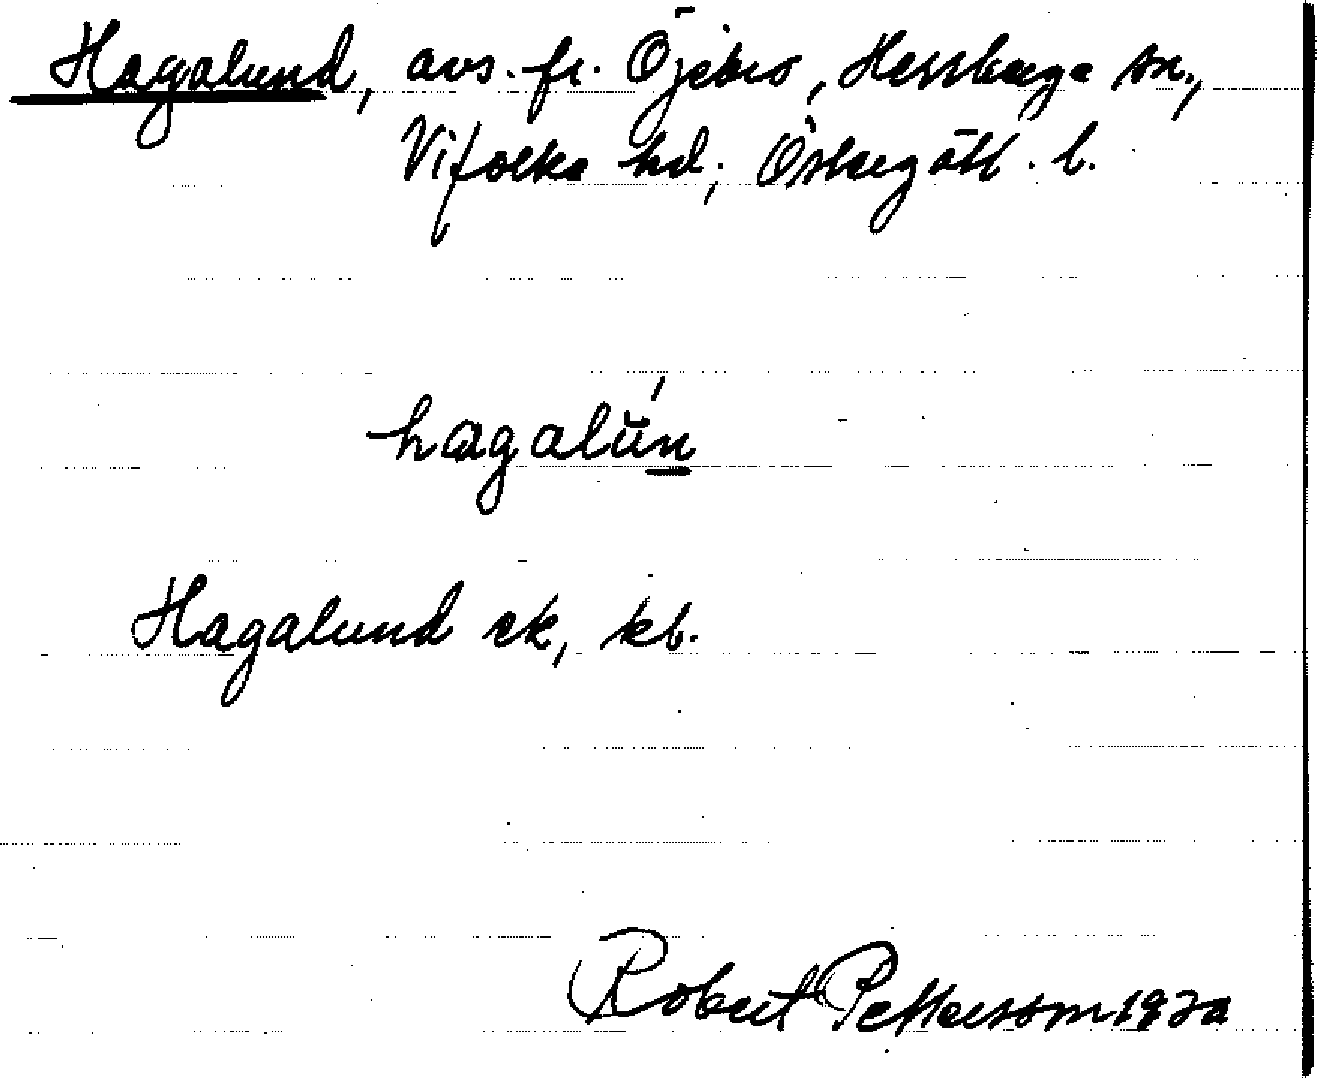 Hagalund, avs. fr. Öjebro, Herrberga sn.,
Vifolka hd; Östergötl. l.
hagalŭ́n
Hagalund ek, kb.
Robert Pettersson